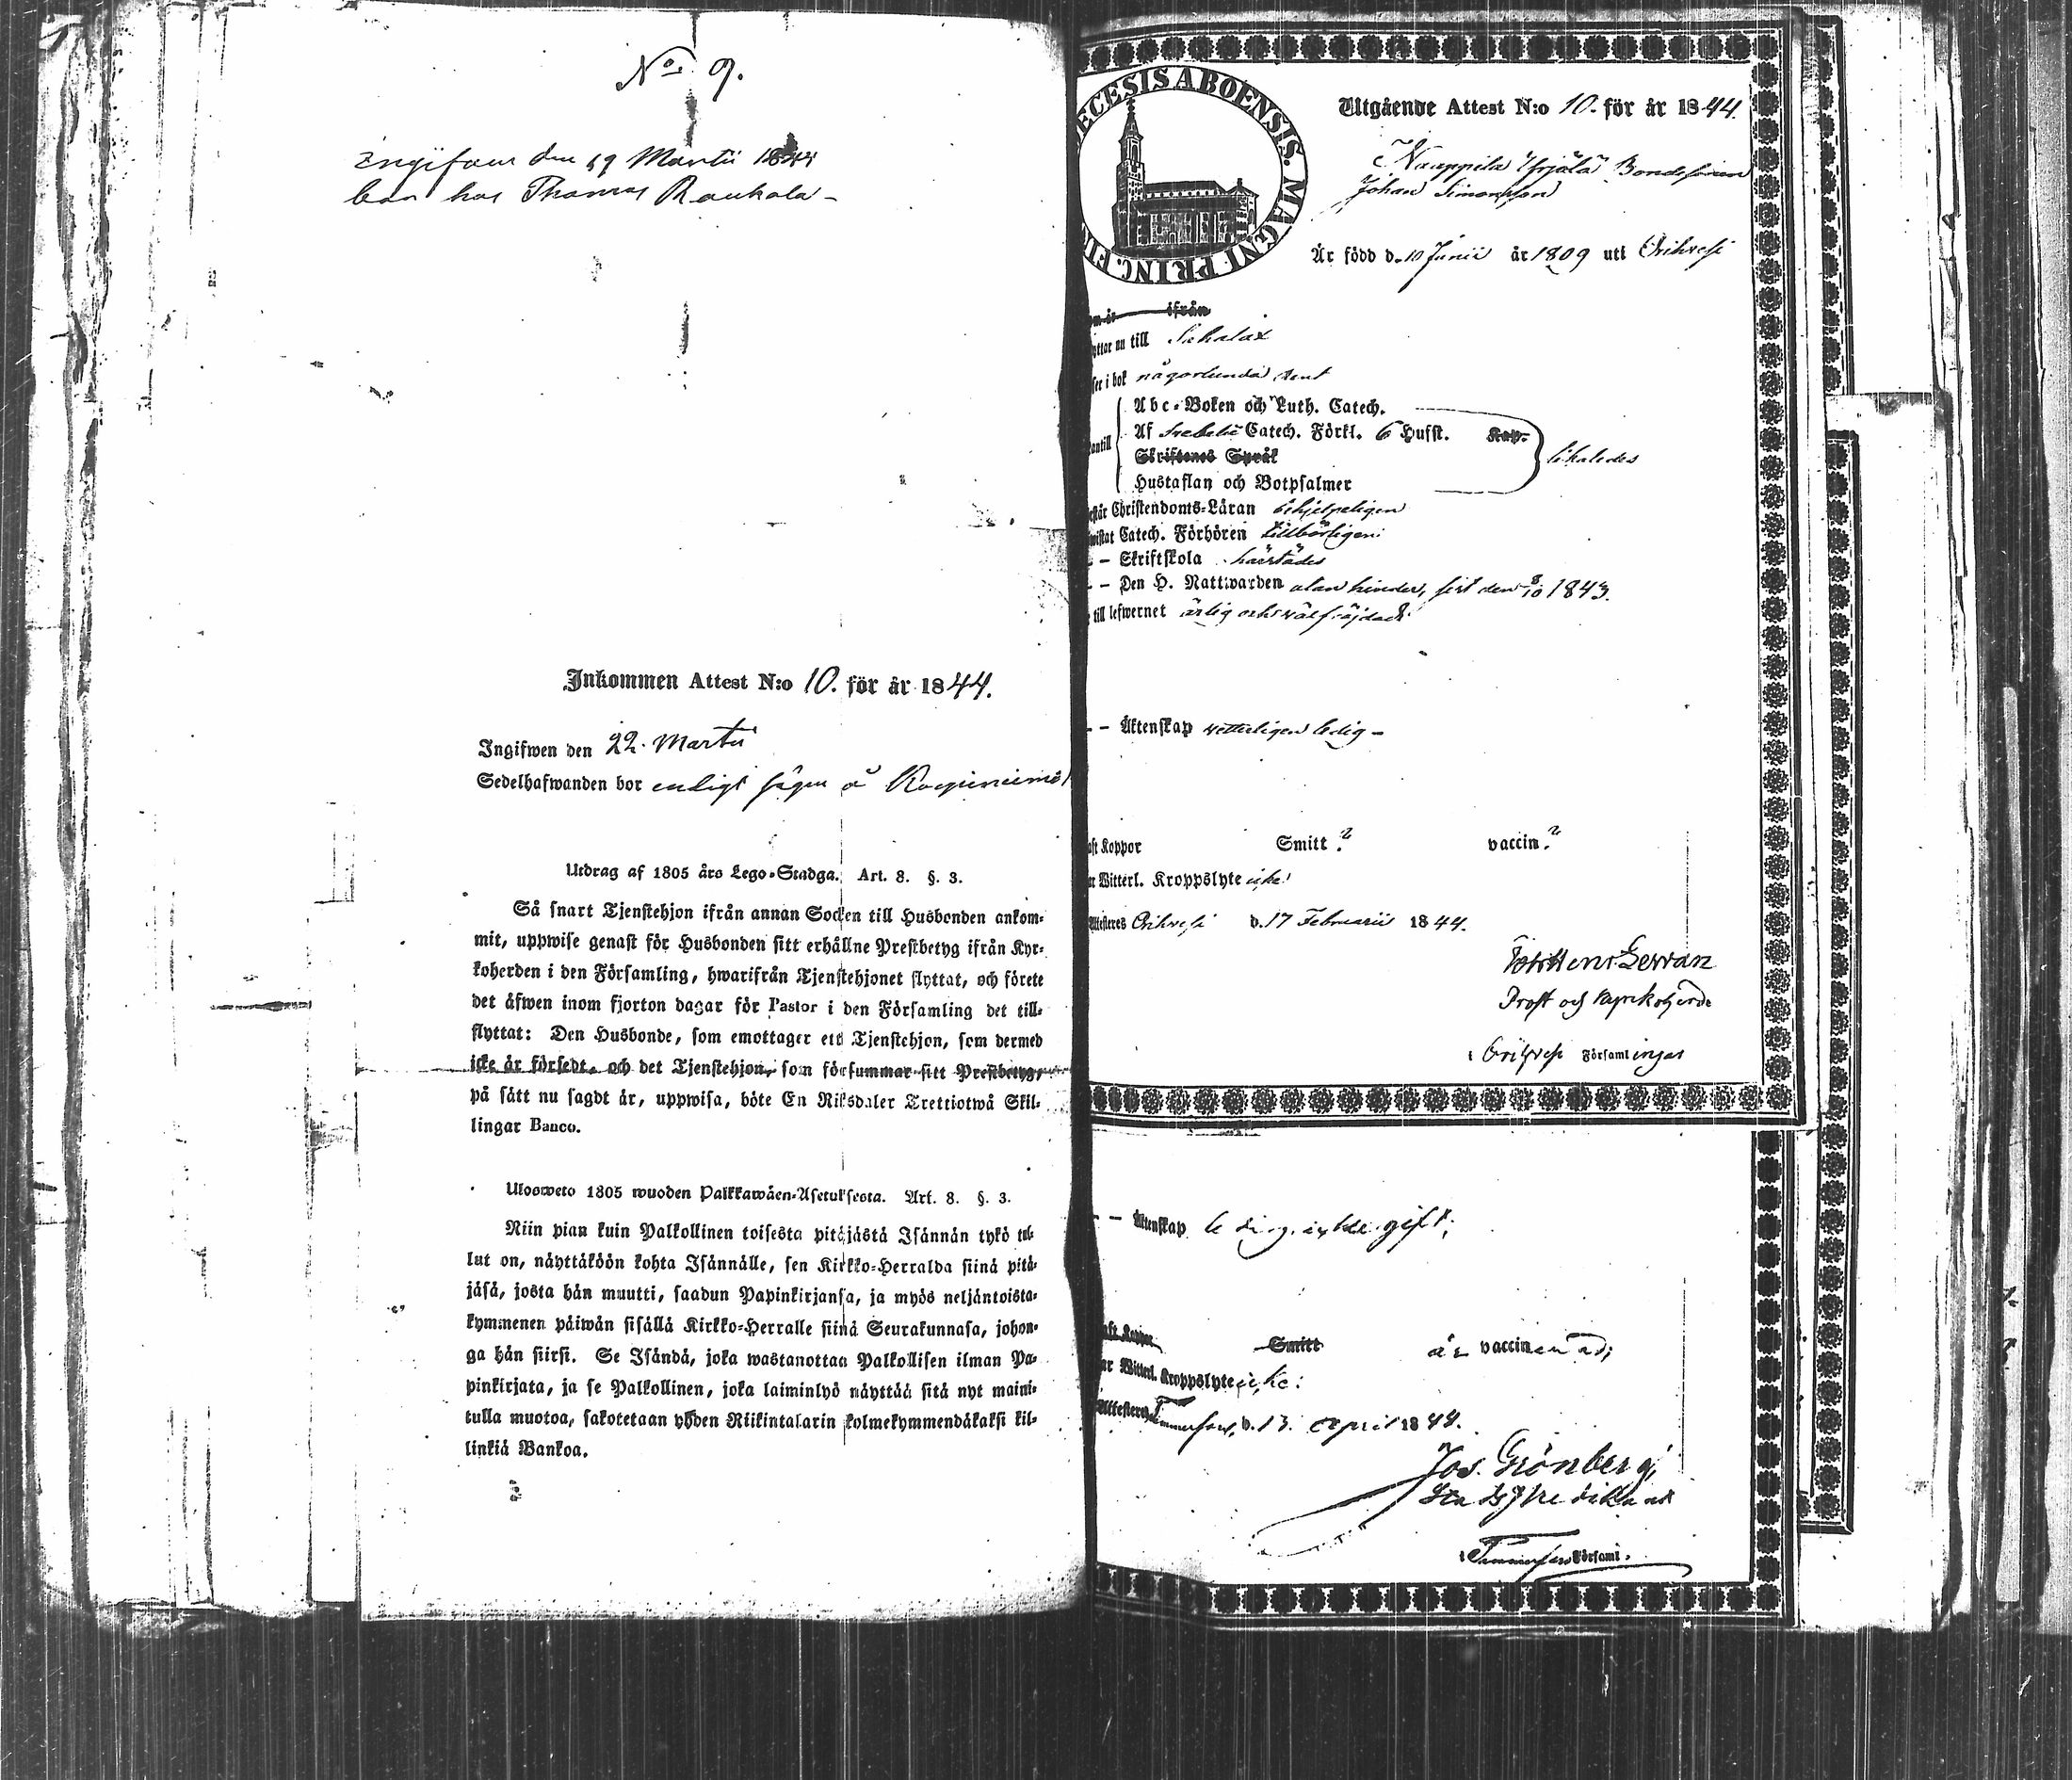 No 9.
Ingifven den 19 Martii 1844
bor hos Thomas Raukala -
Inkommen Attest N:o 10. för år 1844.
Ingifwen den 22. Martii
Sedelhafwanden bor enligt sägen å
Utdrag af 1805 års Lego-Stadga. Art. 8. §. 3.
Så snart Tjenstehjon ifrån annan Socken till Husbonden ankom-
mit, uppwise genast för Husbonden sitt erhållne Prestbetyg ifrån Kyr-
koherden i den Församling, hwarifrån Tjenstehjonet flyttat, och förete
det äfwen inom fjorton dagar för Pastor i den Församling det till-
flyttat: Den Husbonde, som emottager ett Tjenstehjon, som dermed
icke är försedt, och det Tjenstehjon, som försummar sitt Prestbetyg,
på sätt nu sagdt är, uppwisa, böte En Riksdaler Trettiotwå Skil-
lingar Banco.
Ulosweto 1805 wuoden Palkkawäen-Asetuksesta. Art. 8. §. 3.
Niin pian kuin Palkollinen toisesta pitäjästä Isännän tykö tul-
lut on, näyttäköön kohta Isännälle, sen Kirkko-Herralda siinä pitä-
jäsä, josta hän muutti, saadun Papinkirjansa, ja myös neljäntoista-
kymmenen päiwän sisällä Kirkko-Herralle siinä Seurakunnasa, johon-
ga hän siirsi. Se Isändä, joka wastanottaa Palkollisen ilman Pa-
pinkirjata, ja se Palkollinen, joka laiminlyö näyttää sitä nyt maini-
tulla muotoa, sakotetaan yhden Riikintalarin kolmekymmendäkaksi kil-
linkiä Bankoa.
ECESIS ABOENSIS. MAGNI PRINC. FIN
Utgående Attest N:o 10. för år 1844.
Bondesonen
Johan Simonsson
Är född d. 10 Junii år 1809 uti Orihvesi
ifrån
yttar nu till Sahalax
ser i bok någorlunda rent
Abc-Boken och Luth. Catech.
Af Svebelii Catech. Förkl. 6 Hufst. Kap.
Skriftenes Språk
likaledes
Hustaflan och Botpsalmer
står Christendoms-Läran behjelpeligen
wistat Catech. Förhören tillbörligen
- Skriftskola härstädes
- - Den H. Nattwarden utan hinder, sist den 8/10 1843.
till lefwernet ärlig och wälfräjdad
- - Äktenskap vetterligen ledig -
aft Koppor Smitt ? vaccin. ?
ar Witterl. Kroppslyte icke
Attesteres Orihvesi d. 17 Februarii 1844.
Prost och Kyrkoherde
i Orihvesi Församlingar
- - Äktenskap ledig, icke gift;
aft Koppor Smitt är vaccinerad;
ar Witterl. Kroppslyte icke:
Attesteres Tammerfors, d. 13. April 1844.
Jos. Grönberg
Stadspredikant
i Tammerfors Församl.